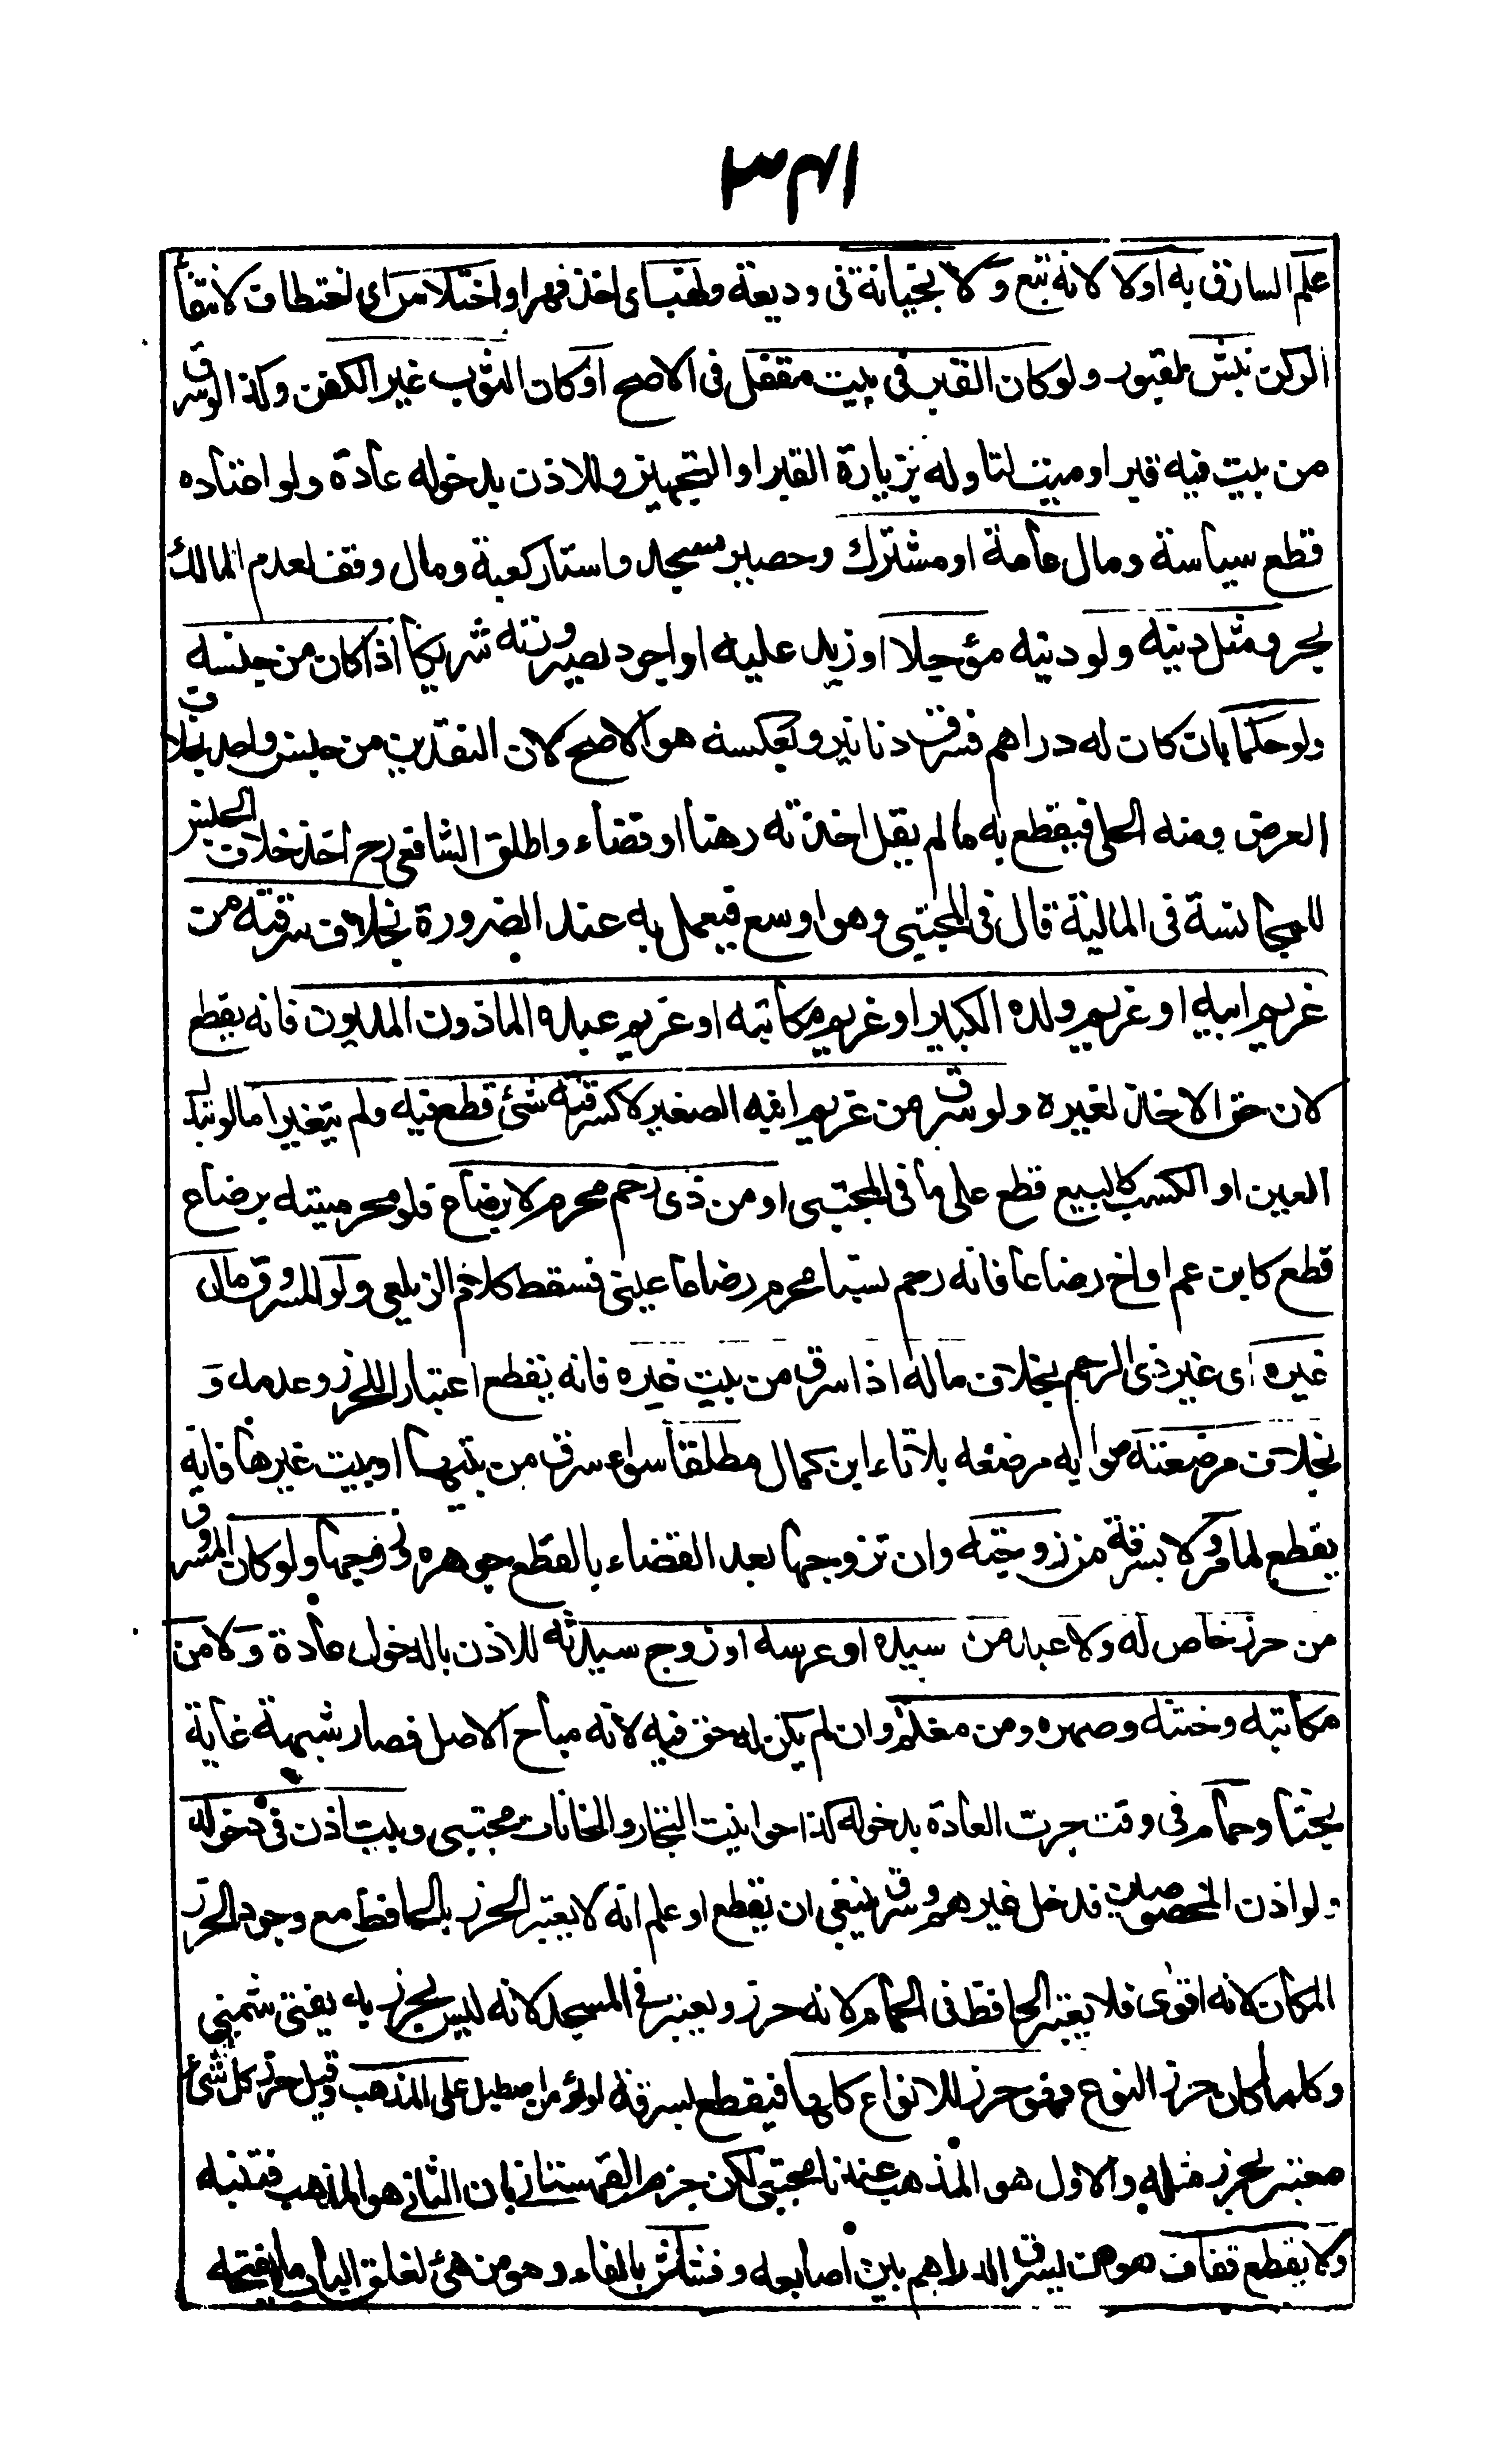 علم السارق به اولا لانه تبع ولا بخيانة فى وديعة ونهب اى اخذ قهرا او اختلاس اى اختطاف لانتفاء
الركن نبش لقبور ولو كان القبر فى بيت مقفل فى الاصح او كان الثوب غير الكفن وكذا لو سرق
من بيت فيه قبر او ميت لتاوله بزيارة القبر او التجهيز وللاذن بدخوله عادة ولو اعتاده
قطع سياسة ومال عامة او مشترك وحصير مسجد واستار كعبة ومال وقف لعدم المالك
بحر ومثل دينه ولو دينه مؤجلا او زيد عليه او اجود لصيرورته شريكا اذا كان من جنسه
ولو حكما بان كان له دراهم فسرق دنانير وبعكسه هو الاصح لان النقدين من جنس واحد بخلاف
العرض ومنه الحلى فيقطع به ما لم يقل اخذته رهنا او قضاء واطلق الشافعى رح اخذ خلاف الجنس
للمجانسة فى المالية قال فى المجتبى وهو اوسع فيعمل به عند الضرورة بخلاف سرقته من
غريم ابيه او غريم ولده الكبير او غريم مكاتبه او غريم عبده الماذون المديون فانه يقطع
لان حق الاخذ لغيره ولو سرق من غريم ابنه الصغير لا كسرقة شئ قطع فيه ولم يتغير اما لو تبدل
العين او الكسب كالبيع قطع على ما فى المجتبى او من ذى رحم محرم لا برضاع فلو محرميته برضاع
قطع كابن عم او اخ رضاعا فانه رحم نسبا محرم رضاعا عينى فسقط كلام الزيلعى ولو المسروق مال
غيره اى غير ذى الرحم بخلاف ماله اذا سرق من بيت غيره فانه يقطع اعتبار اللحرز وعدمه و
بخلاف مرضعته صوابه مرضعه بلا تاء ابن كمال مطلقا سواء سرق من بيتها او بيت غيرها فانه
يقطع لما مر ولا بسرقة من زوجته وان تزوجها بعد القضاء بالقطع جوهره وزوجها ولو كان المسروق
من حرز خاص له ولا عبد من سيده او عرسه او زوج سيدته للاذن بالدخول عادة ولا من
مكاتبه وختنه وصهره ومن مغنم وان لم يكن له حق فيه لانه مباح الاصل فصار شبهة غاية
بحثا وحمام فى وقت جرت العادة بدخوله كذا حوانيت التجار والخانات مجتبى وبيت اذن فى دخوله
ولو اذن المخصوصين فدخل غيرهم وسرق ينبغى ان يقطع او علم انه لا يعتبر الحرز بالحافظ مع وجود الحرز
المكان لانه اقوى فلا يعتبر الحافظ فى الحمام لانه حرز ويعتبر فى المسجد لانه ليس بحرز به يفتى شمنى
وكلما كان حرز النوع فهو حرز للانواع كلها فيقطع بسرقة لولؤ من اصطبل على المذهب وقيل حرز كل شئ
معتبر بحرز مثله والاول هو المذهب عندنا مجتبى لكن جزم القهستانى بان الثانى هو المذهب فتنبه
ولا يقطع قفاف هو من يسرق الدراهم بين اصابعه وفشاش بالفاء وهو من هئى لغلق الباب ما يفتحه